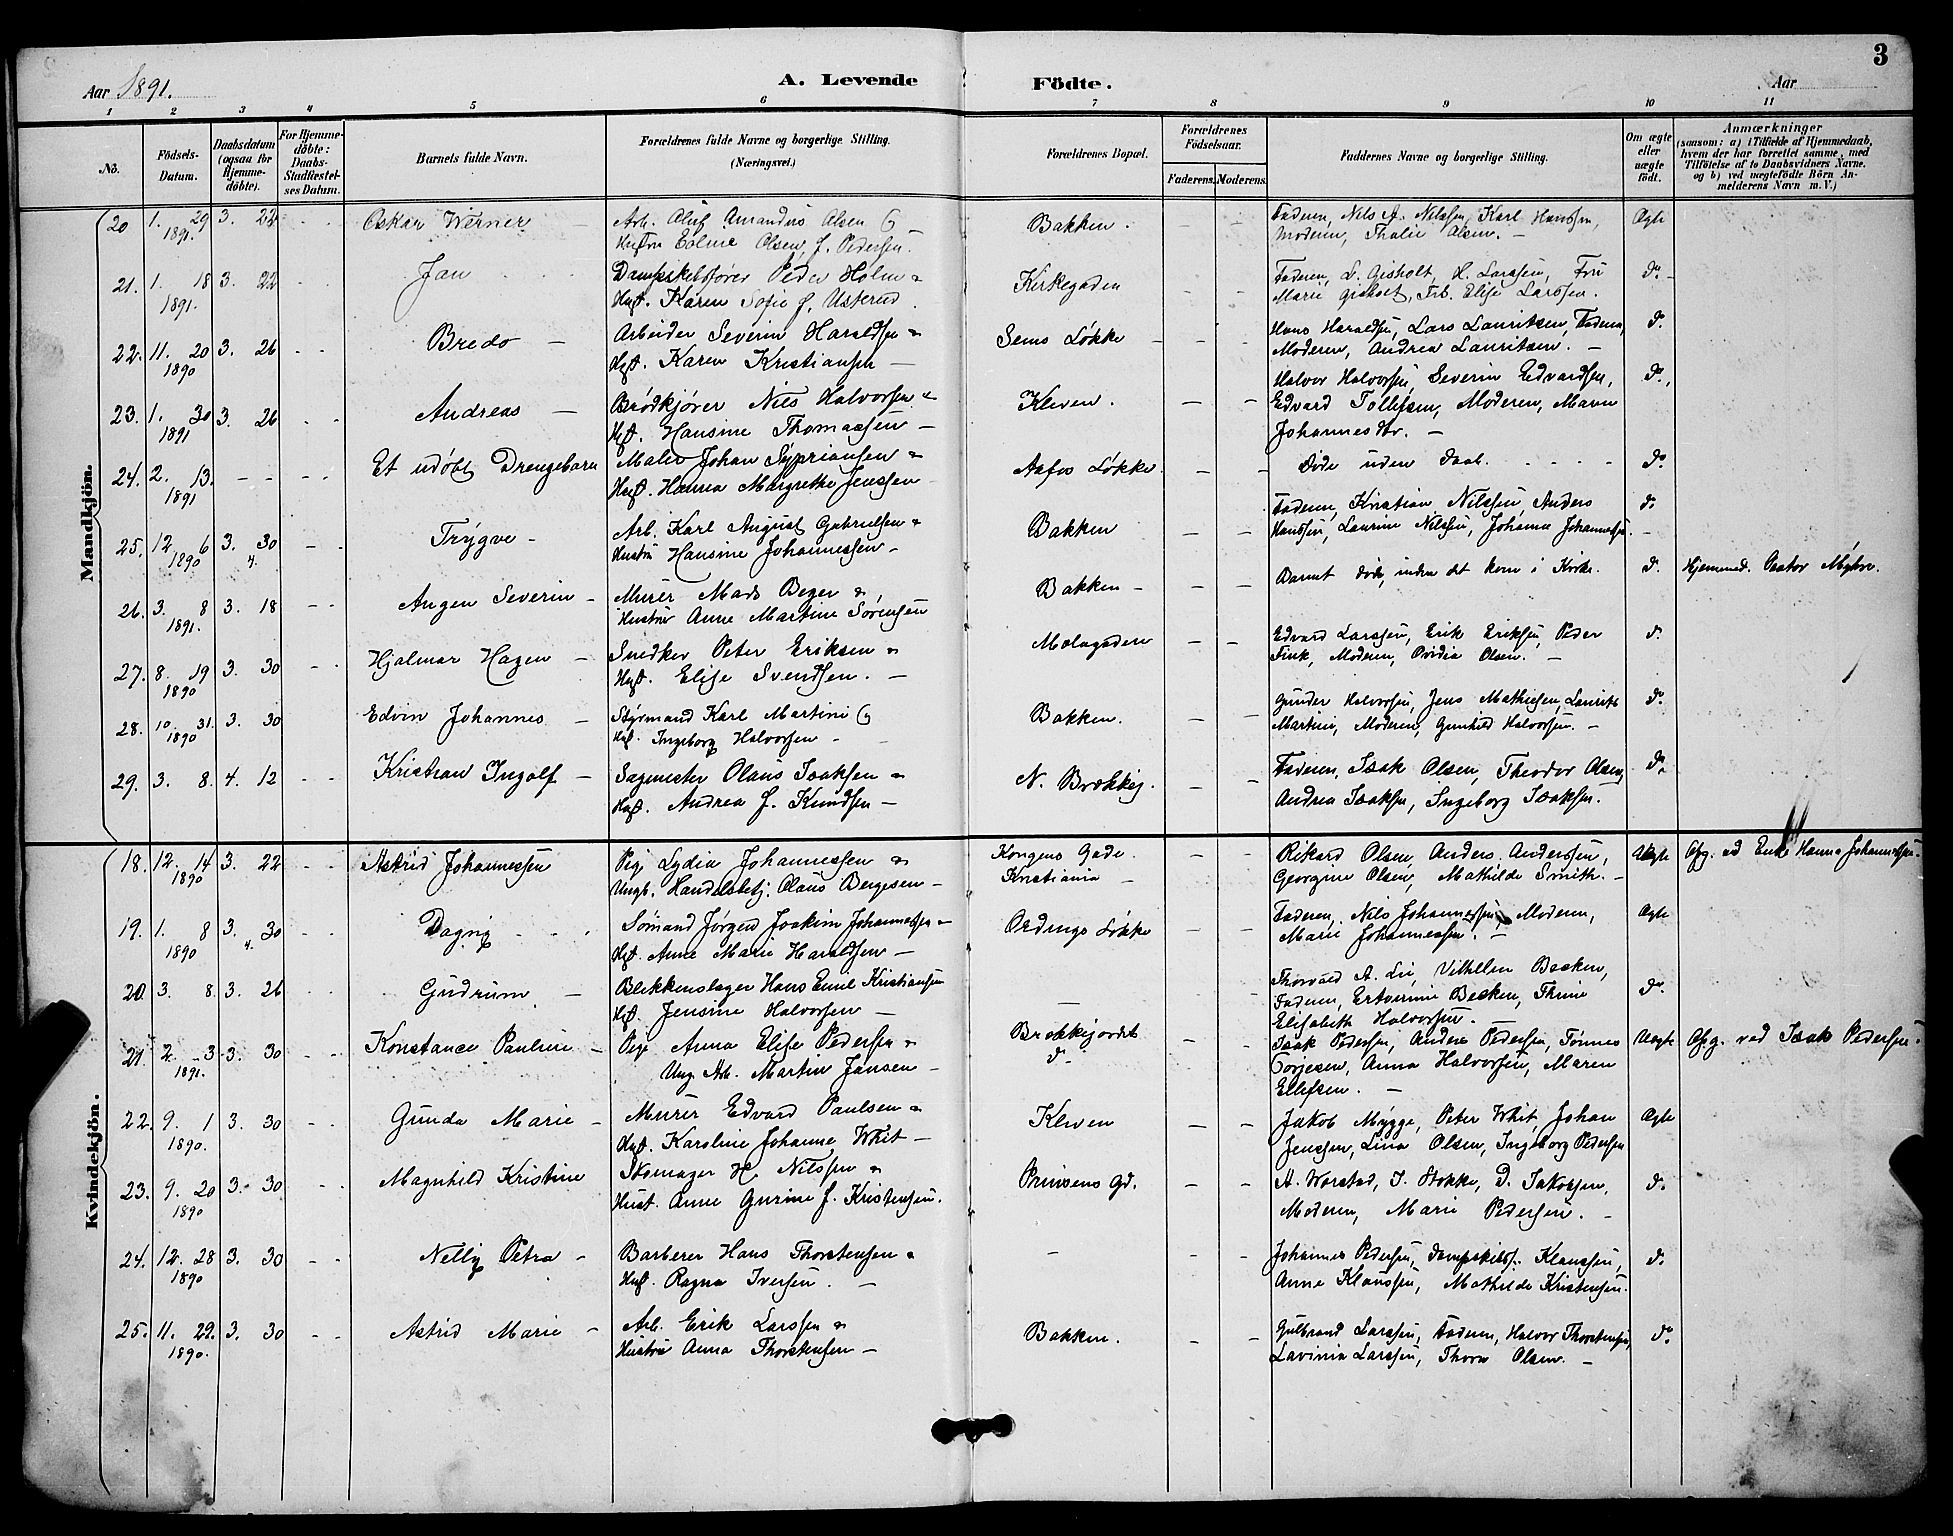 3
Aar 1891.
A. Levende Födte.
Aar
1 2 3 4 5 6 7 8 9 10 11
No.
Födsels-Datum.
Daabsdatum (ogsaa for Hjemmedöbte).
For Hjemmedöbte: Daabs-Stadfæstelses Datum.
Barnets fulde Navn.
Forældrenes fulde Navne og borgerlige Stilling. (Næringsvei.)
Forældrenes Bopæl.
Forældrenes Födselsaar.
Faderens. Moderens.
Faddernes Navne og borgerlige Stilling.
Om ægte eller uægte födt.
Anmærkninger
(saasom: a) i Tilfælde af Hjemmedaab, hvem der har forrettet samme, med Tilföielse af to Daabsvidners Navne. og b) ved uægtefödte Börn Anmelderens Navn m. V.)
Mandkjön.
20 1. 29 3. 22 - - Oskar Werner Arb. Oluf Amandus Olsen Bakken. - - Faderen, Nils A. Nilssen, Karl Hanssen, Ægte
1891. Hustru Olsen f. Pedersen. Moderen, Thalie Olsen. -
21. 1. 18 3. 22 - - Jan Dampskibsfører Peder Holm & Kirkegaden - - Faderen, L. Gisholt, H. Larssen, Fru Do -
1891. Hust. Karen Sofie f. Usterud. Marie Gisholt, Frk. Elise Larssen.
22. 11. 20 3. 26 - - Bredo - Arbeider Severin Haraldsen & Sems Løkke - - - Hans Haraldsen, Lars Lauritsen, Faderen, Do
1890 Hust. Karen Kristiansen - Moderen, Andrea Lauritsen. -
23. 1. 30 3. 26 - - Andreas - Brødkjører Nils Halvorsen & Kleven. - - Halvor Halvorsen, Severin Edvardsen, Do
1891 Hust. Hansine Thomassen - Edvard Tollefsen, Moderen, Maren
Johannesdtr. -
24. 2. 13. - - - - Et udøbt Drengebarn Maler Johan Sypriansen & Aafos Løkke. - - Døde uden Daab. Do
1891 Hust. Hanna Margrethe Jenssen
25. 12. 6 3. 30 - - Trygve - Arb. Karl August Gabrielsen & Bakken - - Faderen, Kristian Nilssen, Anders Do
1890 4. Hustru Hansine Johannessen - Hanssen, Laurine Nilssen, Johanna Johannessen. -
26. 3. 8 3. 18 - - Augen Severin - Murer Mads Beger & Bakken - - - Barnet døde, inden det kom i Kirke. Do Hjemmed.
1891. Hustru Anne Martine Sørensen
27. 8. 19 3. 30 - - Hjalmar Hagen - Snedker Peter Eriksen & Molagaden - - Edvard Larssen, Erik Eriksen, Peder Do
1890 Hust. Elise Svendsen. - Fink, Moderen, Ovidia Olsen. -
28. 10 31. 3. 30 - - Edvin Johannes - Styrmand Karl Martini Bakken. - - Gunder Halvorsen, Jens Mathiesen, Laurits Do
1890 Hust. Ingeborg Halvorsen - Martini, Moderen, Gunhild Halvorsen. -
29. 3. 8. 4. 12 - - Kristian Ingolf - Sagmester Olaus Isaksen & N. Brekkej. - - Faderen, Isak Olsen, Theodor Olsen, Do
Hust. Andrea f. Knudsen - Andrea Isaksen, Ingeborg Isaksen.
Kvindekjön.
18. 12. 14 3. 22 - - Astrid Johannessen Pige Lydia Johannessen & Kongens Gade. - - Rikard Olsen, Anders Anderssen, Uægte Opg. ad Enke Hanna Johannessen.
1890 Ungk. Handelsbetj. Olaus Bergesen - Kristiania - Georgine Olsen, Mathilde Smith. -
19. 1. 8 3. 30 - - Dagny Sømand Jørgen Joakim Johannessen & Ordings Løkke - - Faderen, Nils Johannessen, Moderen, Ægte
1890 4. Hust. Anne Marie Haraldsen - Marie Johannessen. -
20. 3. 8. 3. 26 - - Gudrun - Blikkenslager Hans Emil Kristiansen - - Thorvald A. Lie, Vilhelm Becken, Do
Hust. Jensine Halvorsen - Faderen, Becken, Thrine
Elisabeth Halvorsen. -
21. 2. 3 3. 30 - - Konstance Pauline - Pige Anna Elise Pedersen & Brekkejordet - - Isak Pedersen, Anders Pedersen, Tønnes Uægte Opg. ved Isak Pedersen.
1891. Ung. Arb. Martin Jansen - Do Torjesen, Anna Halvorsen, Maren
Ellefsen. -
22. 9. 1 3. 30 - - Gunda Marie - Murer Edvard Paulsen & Kleven - - Jakob Mygge, Peter Whit, Johan Ægte
1890. Hust. Karoline Johanne Whit - Jenssen, Lina Olsen, Ingeborg Pedersen
23. 9. 20 3. 30 - - Magnhild Kristine Skomager H. Nilssen & Prinsens Gd. - - A. Worstad, I. Stokke, D. Jakobsen, Do
1890 Hust. Anne Gurine f. Kristensen. Moderen, Marie Pedersen. -
24. 12. 28 3. 30 - - Nelly Petra - Barberer Hans Thorstensen & - - - Johannes Pedersen, Dampskibsf. Klaussen, Do
1890 Hust. Ragna Iversen. - Anne Klaussen, Mathilde Kristensen.
25. 11. 29. 3. 30 - - Astrid Marie - Arb. Erik Larssen & Bakken. - - Gulbrand Larssen, Faderen, Halvor Thorstensen, Do
1890. Hustru Anna Thorstensen - Lavinia Larssen, Thora Olsen. -